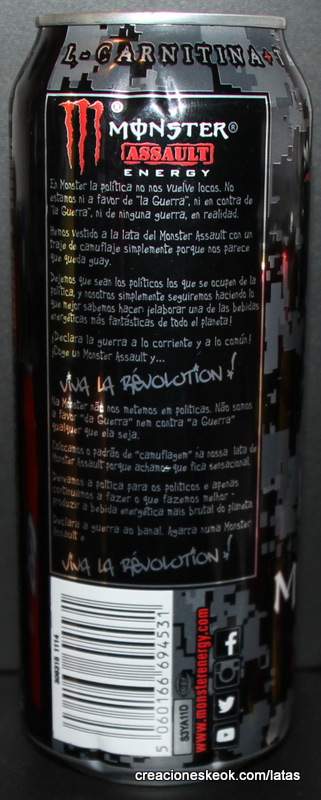 L-CARNITINA+
MONSTER®
ASSAULT
ENERGY
En Monster la política no nos vuelve locos. No
estamos ni a favor de "la Guerra", ni en contra de
"la Guerra", ni de ninguna guerra, en realidad.
Hemos vestido a la lata del Monster Assault con un
traje de camuflaje simplemente porque nos parece
que queda guay.
Dejemos que sean los políticos los que se ocupen de la
política, y nosotros simplemente seguiremos haciendo lo
que mejor sabemos hacer ¡elaborar una de las bebidas
energéticas más fantásticas de todo el planeta!
¡Declara la guerra a lo corriente y a lo común!
¡Coge un Monster Assault y...
VIVA LA RÉVOLUTION!
Na Monster não nos metemos em políticas. Não somos
a favor "da Guerra" nem contra "a Guerra"
qualquer que ela seja.
Colocamos o padrão de "camuflagem" na nossa lata de
Monster Assault porque achamos que fica sensacional.
Deixamos a política para os políticos e apenas
continuamos a fazer o que fazemos melhor -
produzir a bebida energética mais brutal do planeta.
Declara a guerra ao banal. Agarra numa Monster
Assault e
VIVA LA RÉVOLUTION!
308218 1114
5 060166 694531
53YA11D
www.monsterenergy.com
M
creacioneskeok.com/latas